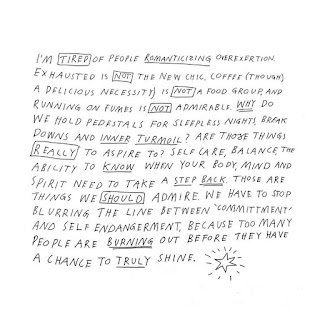 I'M TIRED OF PEOPLE ROMANTICIZING OVEREXERTION.
EXHAUSTED IS NOT THE NEW CHIC, COFFEE (THOUGH
A DELICIOUS NECESSITY) IS NOT A FOOD GROUP, AND
RUNNING ON FUMES IS NOT ADMIRABLE. WHY DO
WE HOLD PEDESTALS FOR SLEEPLESS NIGHTS, BREAK
DOWNS AND INNER TURMOIL? ARE THOSE THINGS
REALLY TO ASPIRE TO? SELF CARE, BALANCE, THE
ABILITY TO KNOW WHEN YOUR BODY, MIND AND
SPIRIT NEED TO TAKE A STEP BACK. THOSE ARE
THINGS WE SHOULD ADMIRE. WE HAVE TO STOP
BLURRING THE LINE BETWEEN 'COMMITTMENT'
AND SELF ENDANGERMENT, BECAUSE TOO MANY
PEOPLE ARE BURNING OUT BEFORE THEY HAVE
A CHANCE TO TRULY SHINE.